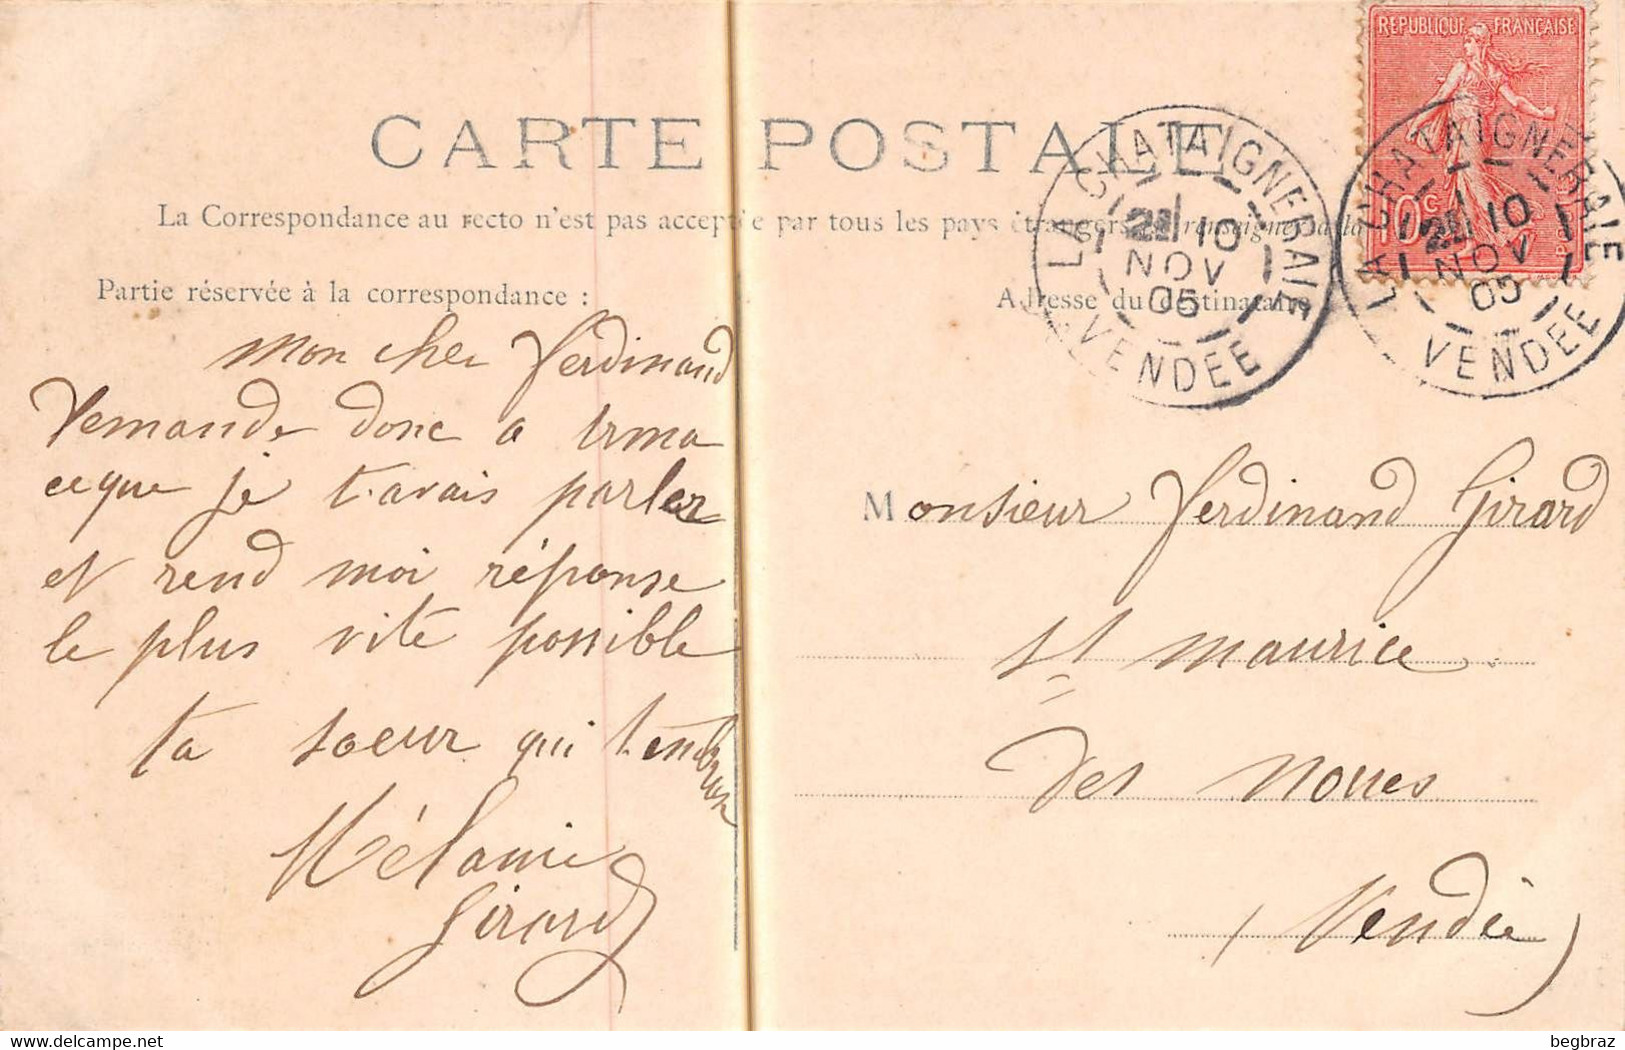 REPUBLIQUE FRANÇAISE
10 c
CARTE POSTALE
La Correspondance au recto n'est pas acceptée par tous les pays étrangers renseigner à la
Partie réservée à la correspondance :
Adresse du destinataire
LA CHATAIGNERAIE
10
NOV
05
VENDEE
LA CHATAIGNERAIE
10
NOV
05
VENDEE
mon cher Ferdinand
Demande donc a Irma
ceque je t'avais parler
et rend moi réponse
le plus vite possible
ta soeur qui t'embrasse
Mélanie
Girard
Monsieur Ferdinand Girard
St maurice
des noues
(Vendée)
begbraz